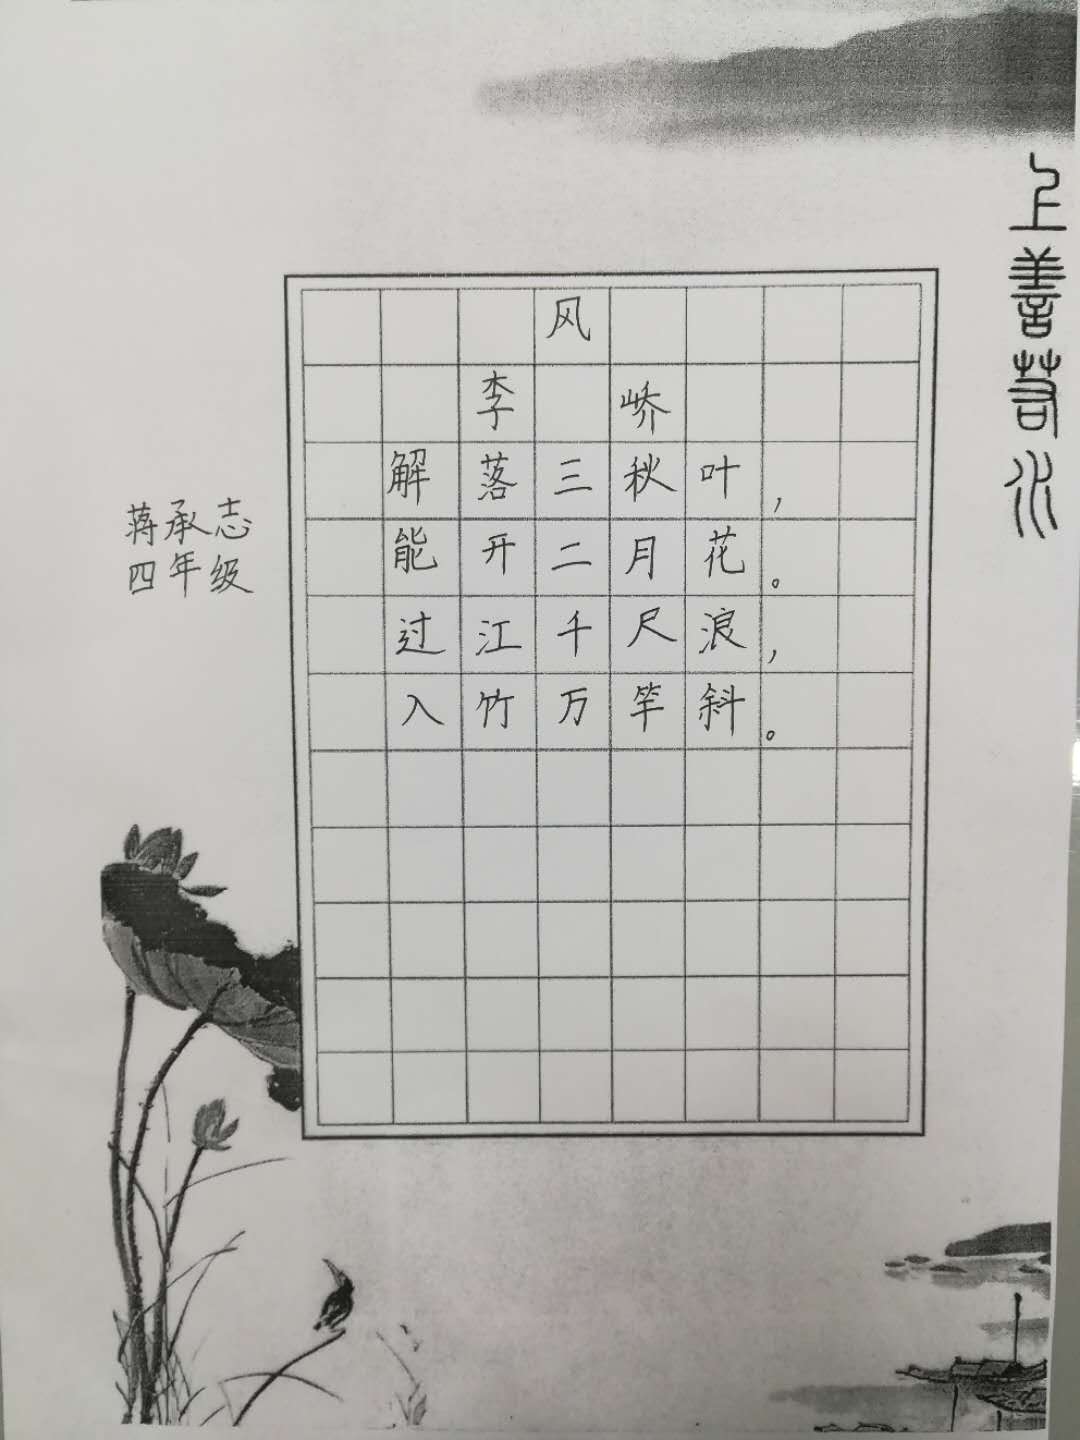 上善若水
风
李峤
解落三秋叶，
能开二月花。
过江千尺浪，
入竹万竿斜。
蒋承志
四年级